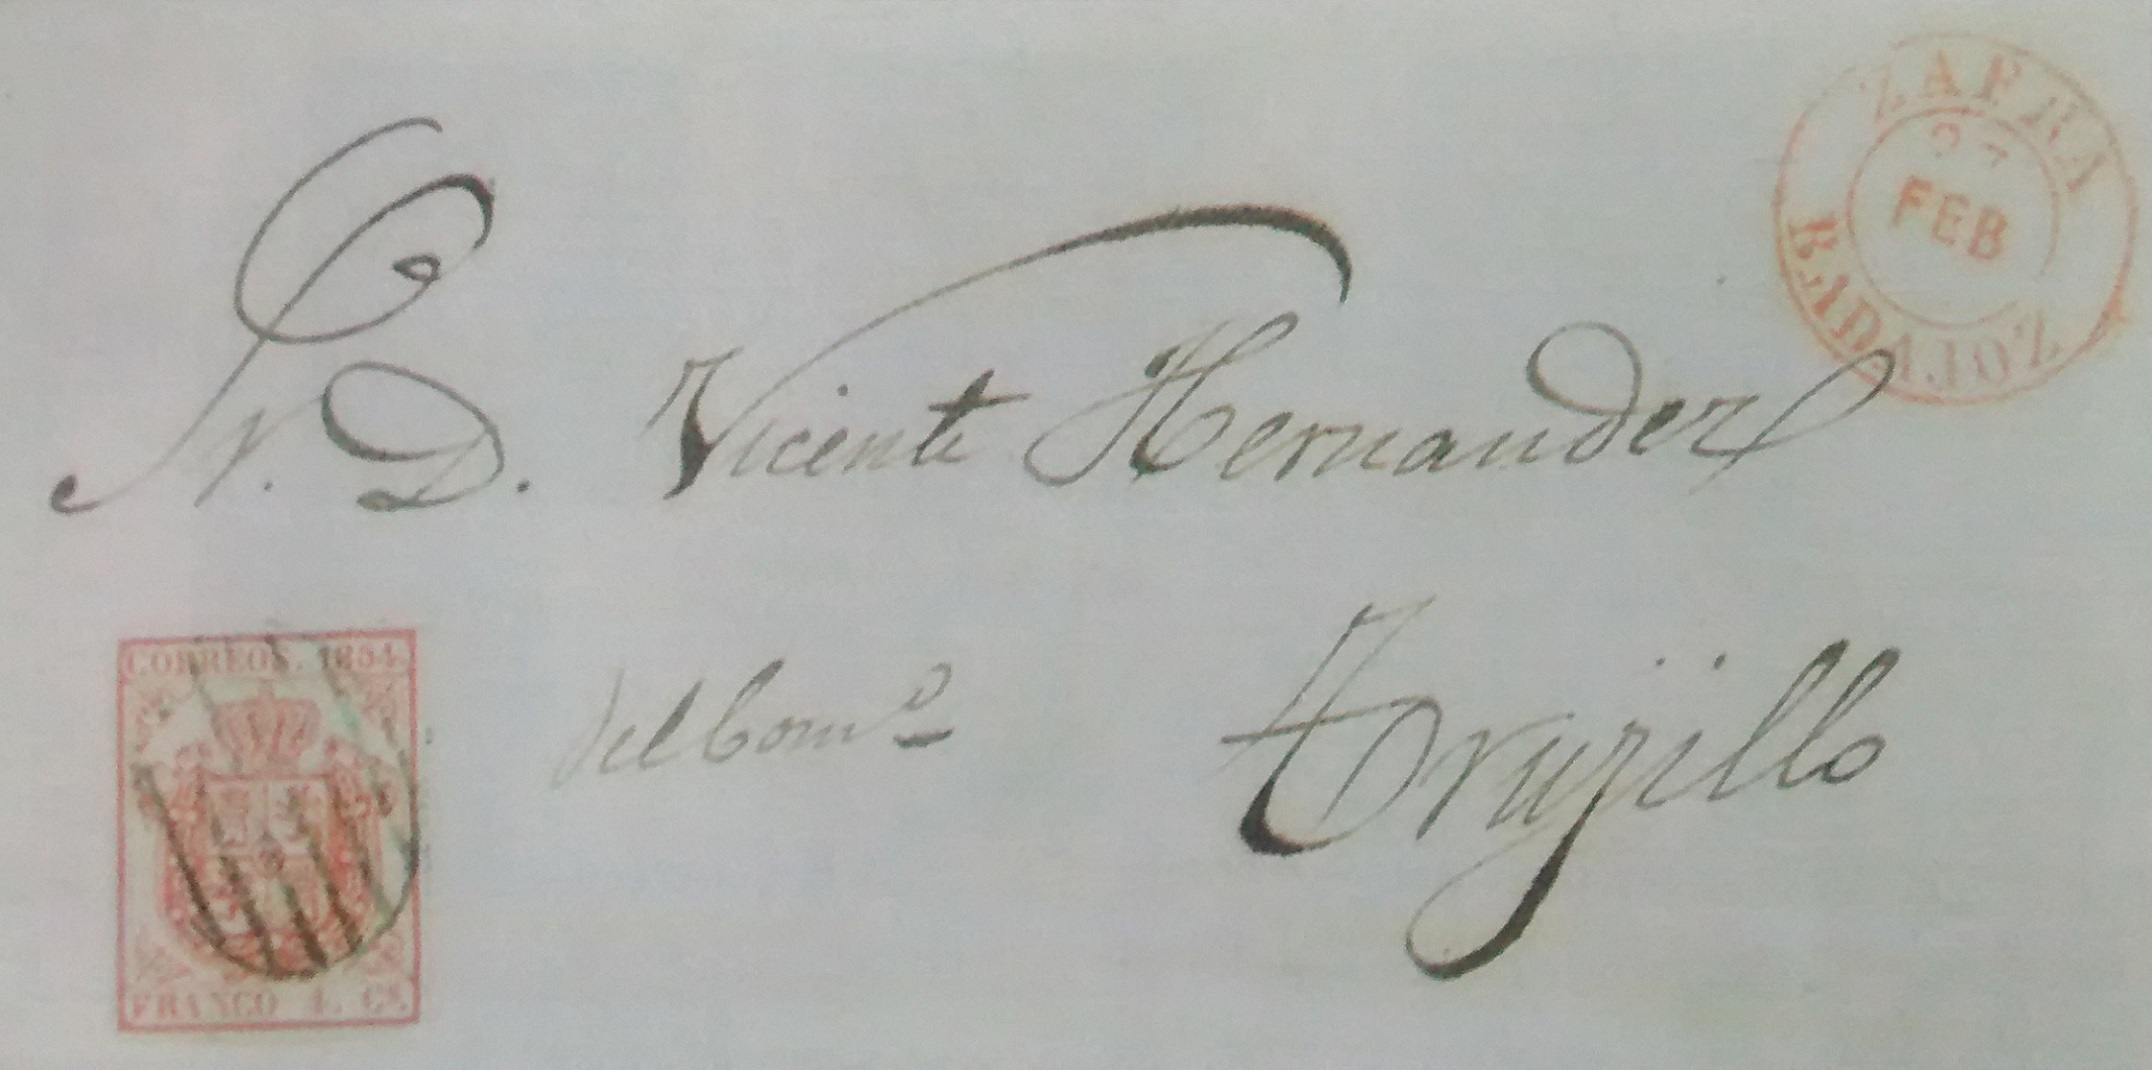 ZAFRA
27
FEB
BADAJOZ
Sr. D. Vicente Hernandez
del Comº
Trujillo
CORREOS. 1854.
FRANCO 4. CS.